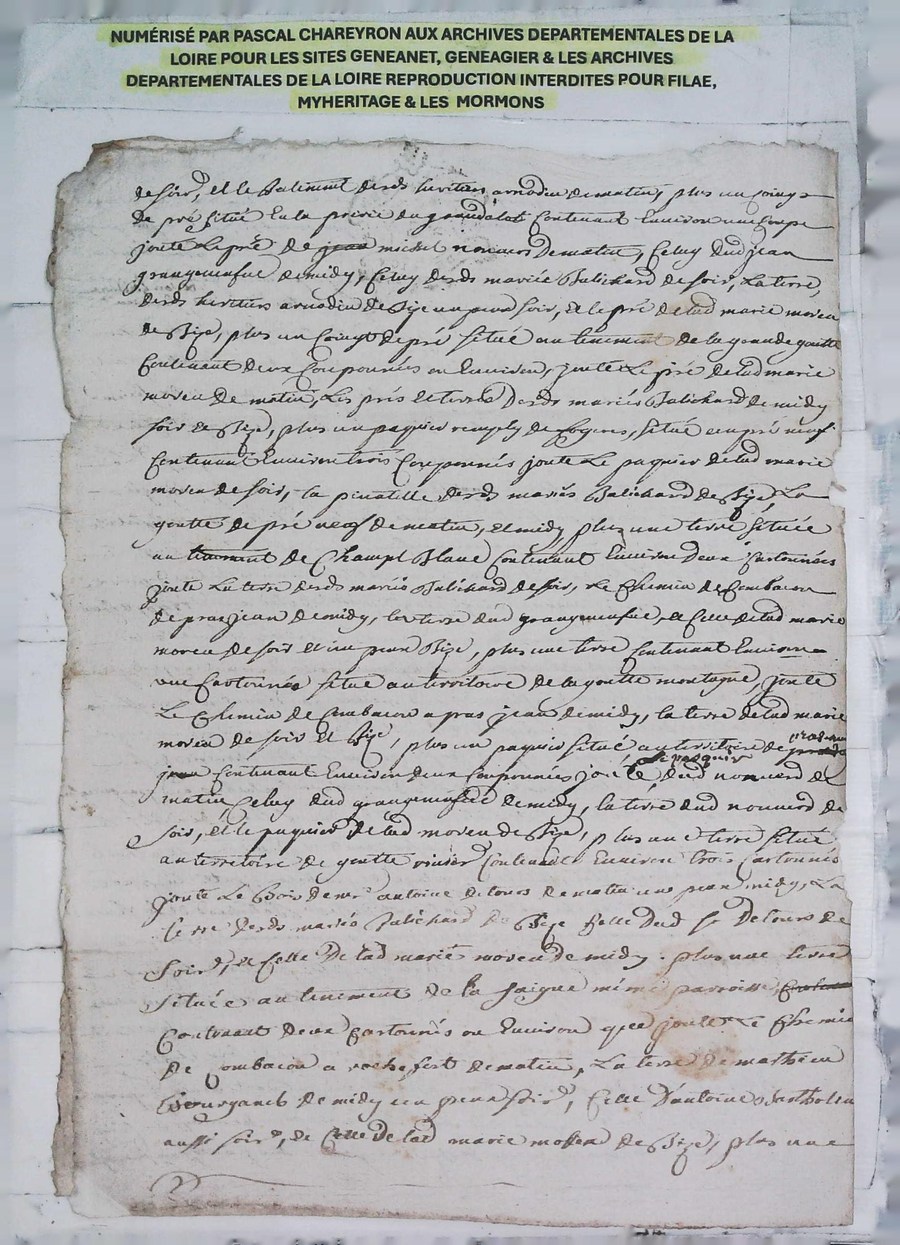 NUMÉRISÉ PAR PASCAL CHAREYRON AUX ARCHIVES DEPARTEMENTALES DE LA
LOIRE POUR LES SITES GENEANET, GENEAGIER & LES ARCHIVES
DEPARTEMENTALES DE LA LOIRE REPRODUCTION INTERDITES POUR FILAE,
MYHERITAGE & LES MORMONS
de soir, et le batiment desds heritiers arnodin de matin, plus un coing
de pré situé en la prerie du contenant Environ une coupe
joute Le pré de michel de matin, Celuy dud jean
grangeneufve de midy, Celuy desds mariés Jalichard de soir, La terre
desds heritiers arnodin de Bize un peu soir, et le pré de lad marie moren
de Bize, plus un Coingt de pré situé au tenement de la grande goutte
Contenant deux Couponnées ou Environ, joute Le pré de lad marie
moren de matin, Les prés et terres desds mariés Jalichard de midy
soir et Bize, plus un paquier remply de, situé en pré neuf
Contenant Environ trois Couponnés joute Le paquier de lad marie
moren de soir, la pinatelle desds mariés Jalichard de Bize, La
goutte de pré neuf de matin, et midy, plus une terre située
au tenement de Champt Blanc Contenant Environ deux Cartonnées
joute La terre desds mariés Jalichard de soir, Le Chemin de Combacon
de pras jean de midy, la terre dud grangeneufve, et Celle de lad marie
moren de soir et un peu Bize, plus une terre Contenant Environ
une Cartonnée situé au territoire de la goutte montagne, joute
Le Chemin de Combacon a pras jean de midy, la terre de lad marie
moren de soir et Bize, plus un paquier situé au territoire de pras
Contenant Environ deux Couponnées joute le paquier dud de
matin, Celuy dud grangeneufve de midy, la terre dud de
soir, et le paquier de lad moren de Bize, plus une terre situé
au territoire de goutte Contenant Environ trois Cartonnés
joute Le Bois de mr antoine detours de matin un peu midy, La
terre desds mariés Jalichard de Bize Celle dud Sr Detours de
soir, et Celle de lad marie moren de midy. plus une terre
située au tenement de la faigue même parroisse
Contenant deux Cartonnés ou Environ joute Le Chemin
de Combacon a rochefort de matin, La terre de mathieu
de midy un peu soir, Celle d'antoine
aussi soir, et Celle de lad marie moren de Bize, plus une